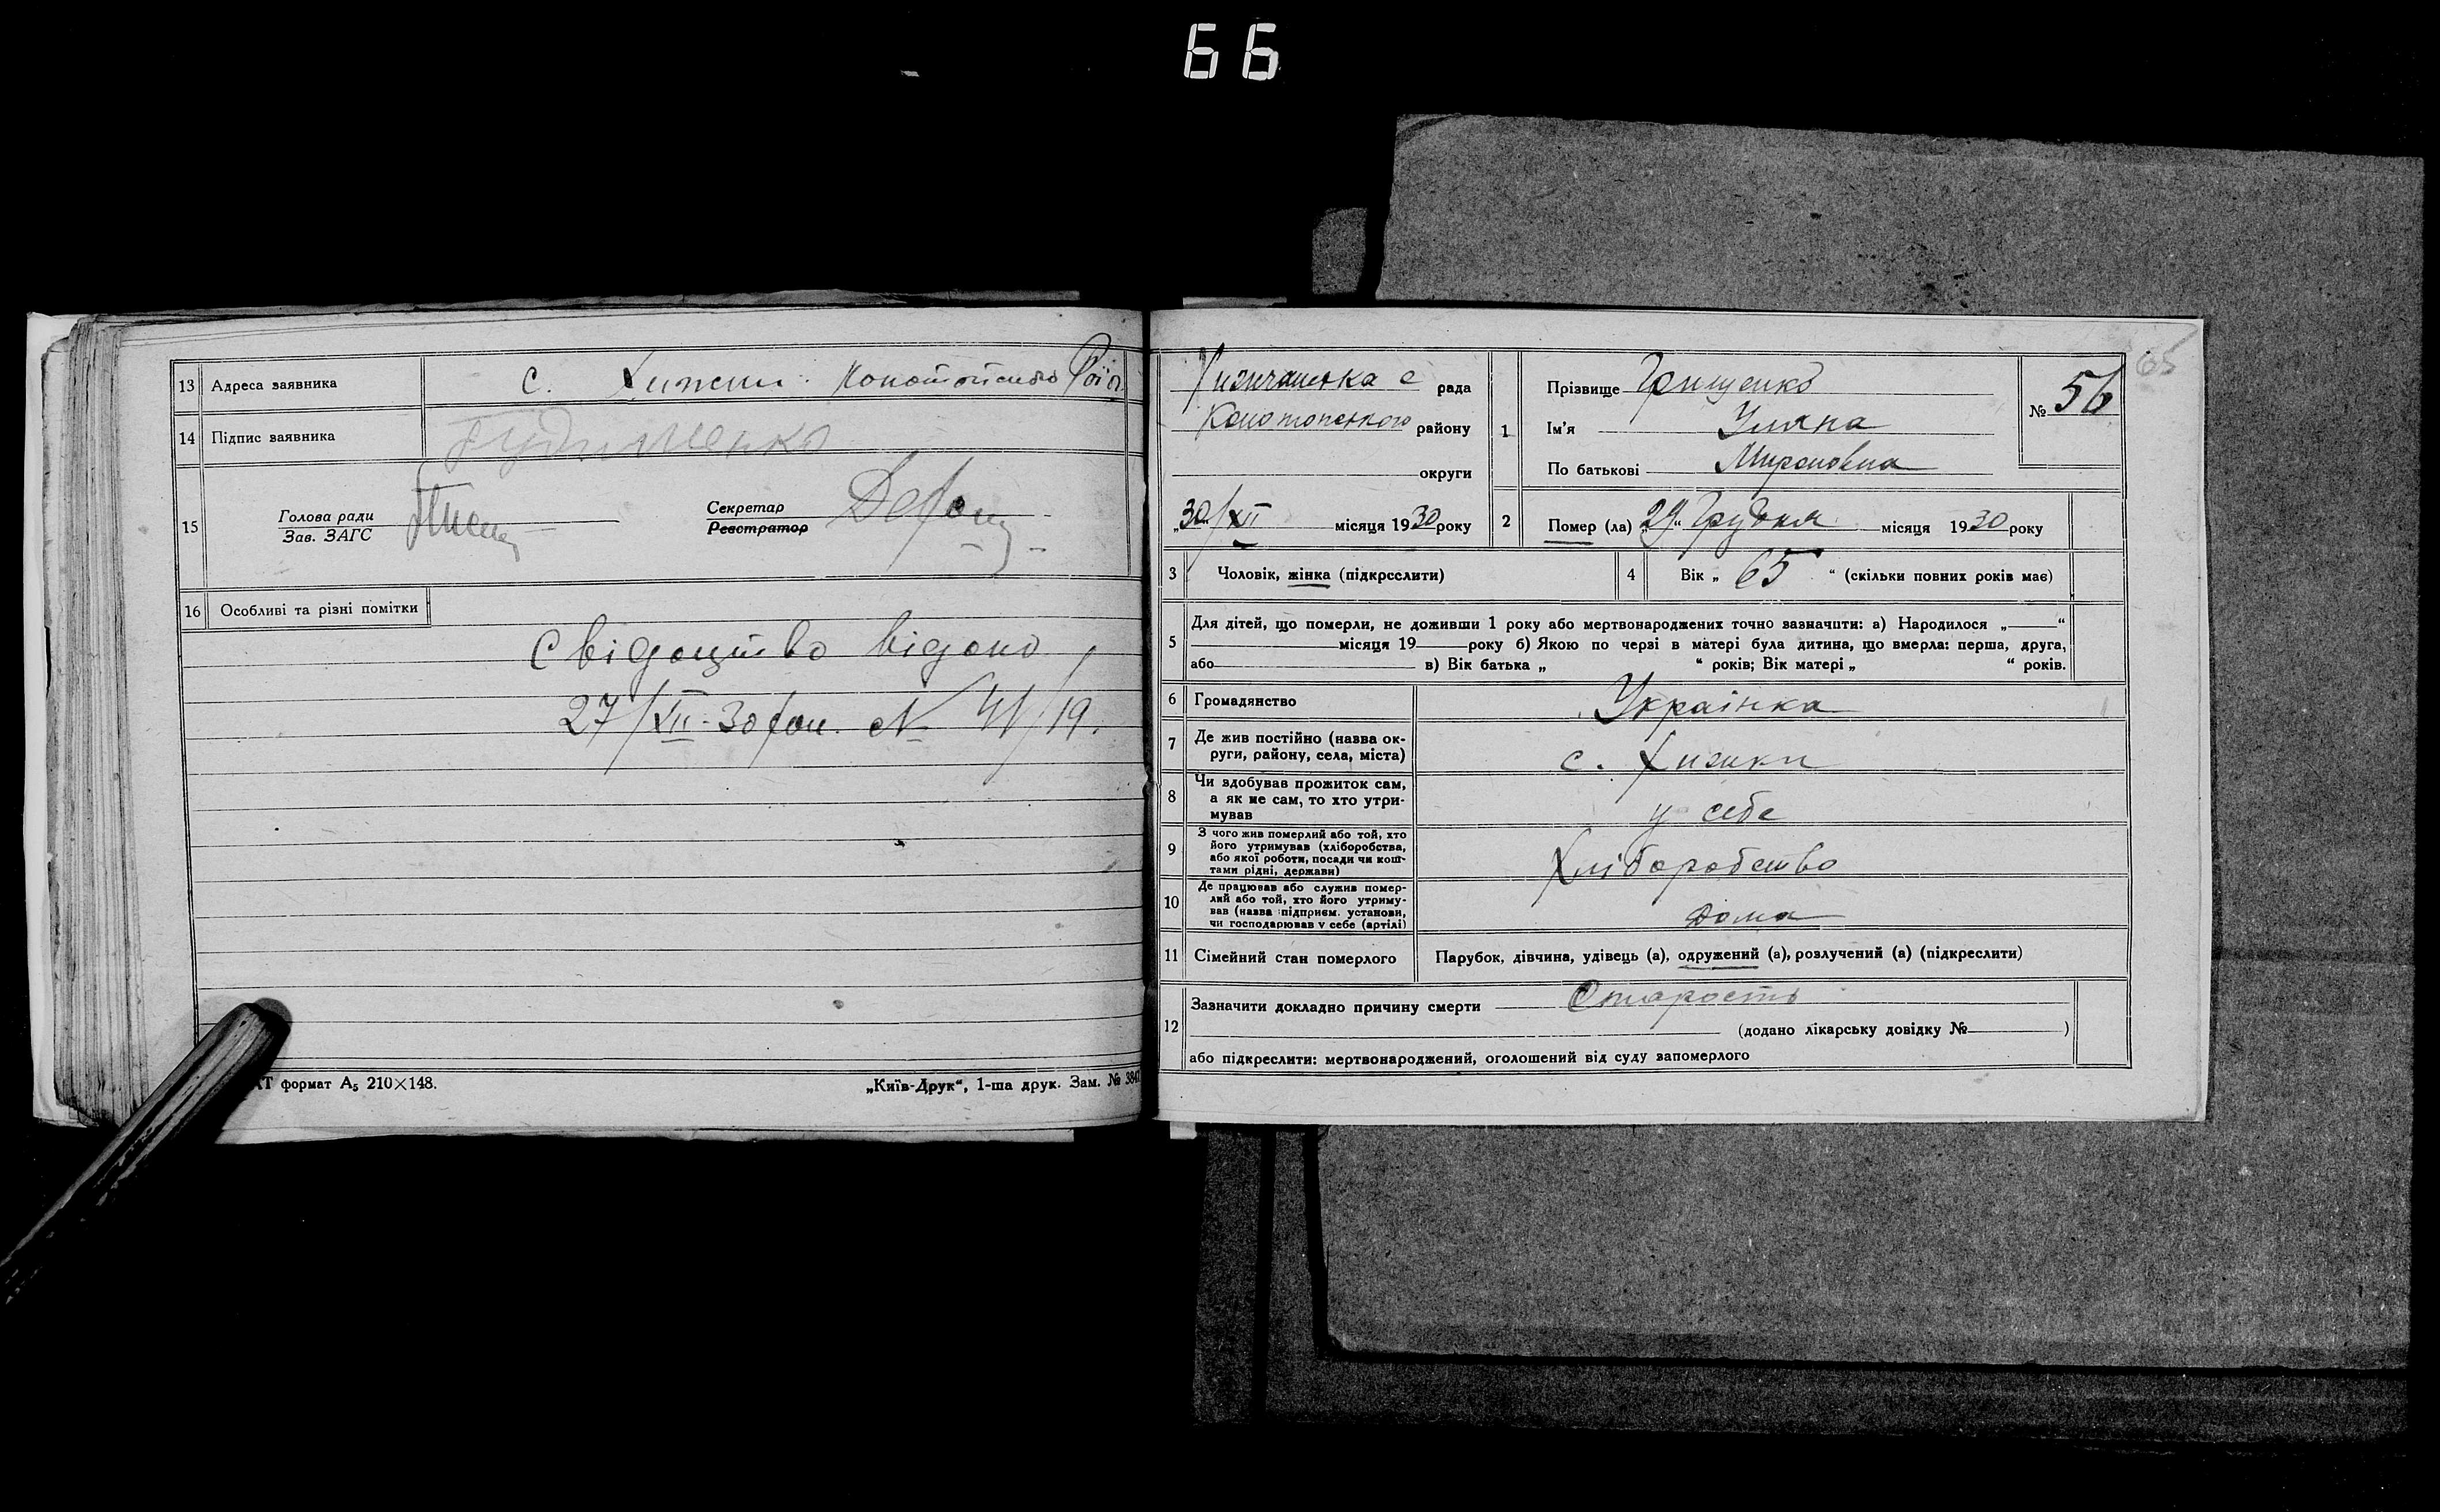 66
13 Адреса заявника с. Хижки Конотопського Рай.
14 Підпис заявника
15 Голова ради
Зав. ЗАГС
Секретар
Реєстратор
16 Особливі та різні помітки
Свідоцтво відано
27/XII-30 № 41/19.
АТ формат А5 210×148.
„Київ-Друк“, 1-ша друк. Зам. № 3847
65
Хижчанська с рада
Конотопського району
округи
„30/XII місяця 1930 року
1 Прізвище Грищенко
Ім'я Уляна
По батькові Мироновна
№ 56
2 Помер (ла) „29“ Грудня місяця 1930 року
3 Чоловік, жінка (підкреслити)
4 Вік „ 65 “ (скільки повних років має)
5 Для дітей, що померли, не доживши 1 року або мертвонароджених точно зазначити: а) Народилося „ “
місяця 19 року б) Якою по черзі в матері була дитина, що вмерла: перша, друга,
або в) Вік батька „ “ років; Вік матері „ “ років.
6 Громадянство Українка
7 Де жив постійно (назва округи, району, села, міста) с. Хижки
8 Чи здобував прожиток сам,
а як не сам, то хто утримував
у себе
9 З чого жив померлий або той, хто
його утримував (хліборобства,
або якої роботи, посади чи коштами рідні, держави)
Хліборобство
10 Де працював або служив померлий або той, хто його утримував (назва підприєм. установи,
чи господарював у себе (артілі)
Дома
11 Сімейний стан померлого Парубок, дівчина, удівець (а), одружений (а), розлучений (а) (підкреслити)
12 Зазначити докладно причину смерти Старость
(додано лікарську довідку № )
або підкреслити: мертвонароджений, оголошений від суду запомерлого